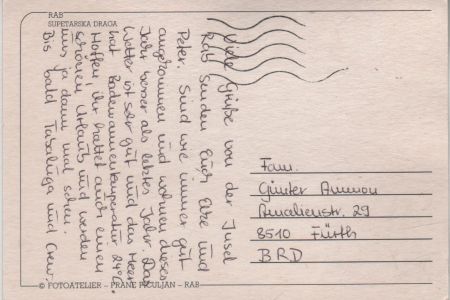 RAB
SUPETARSKA DRAGA
Viele Grüße von der Insel
Rab senden Euch Elze und
Peter. Sind wie immer gut
angekommen und wohnen dieses
Jahr besser als letztes Jahr. Das
Wetter ist sehr gut und das Meer
hat Badewannentemperatur 24°C.
Hoffen, ihr hattet auch einen
schönen Urlaub und werden
uns ja dann mal sehen.
Bis bald Tabaluga und Crew.
Fam.
Günter Ammon
Amalienstr. 29
8510 Fürth
BRD
© FOTOATELIER – FRANE PICULJAN – RAB